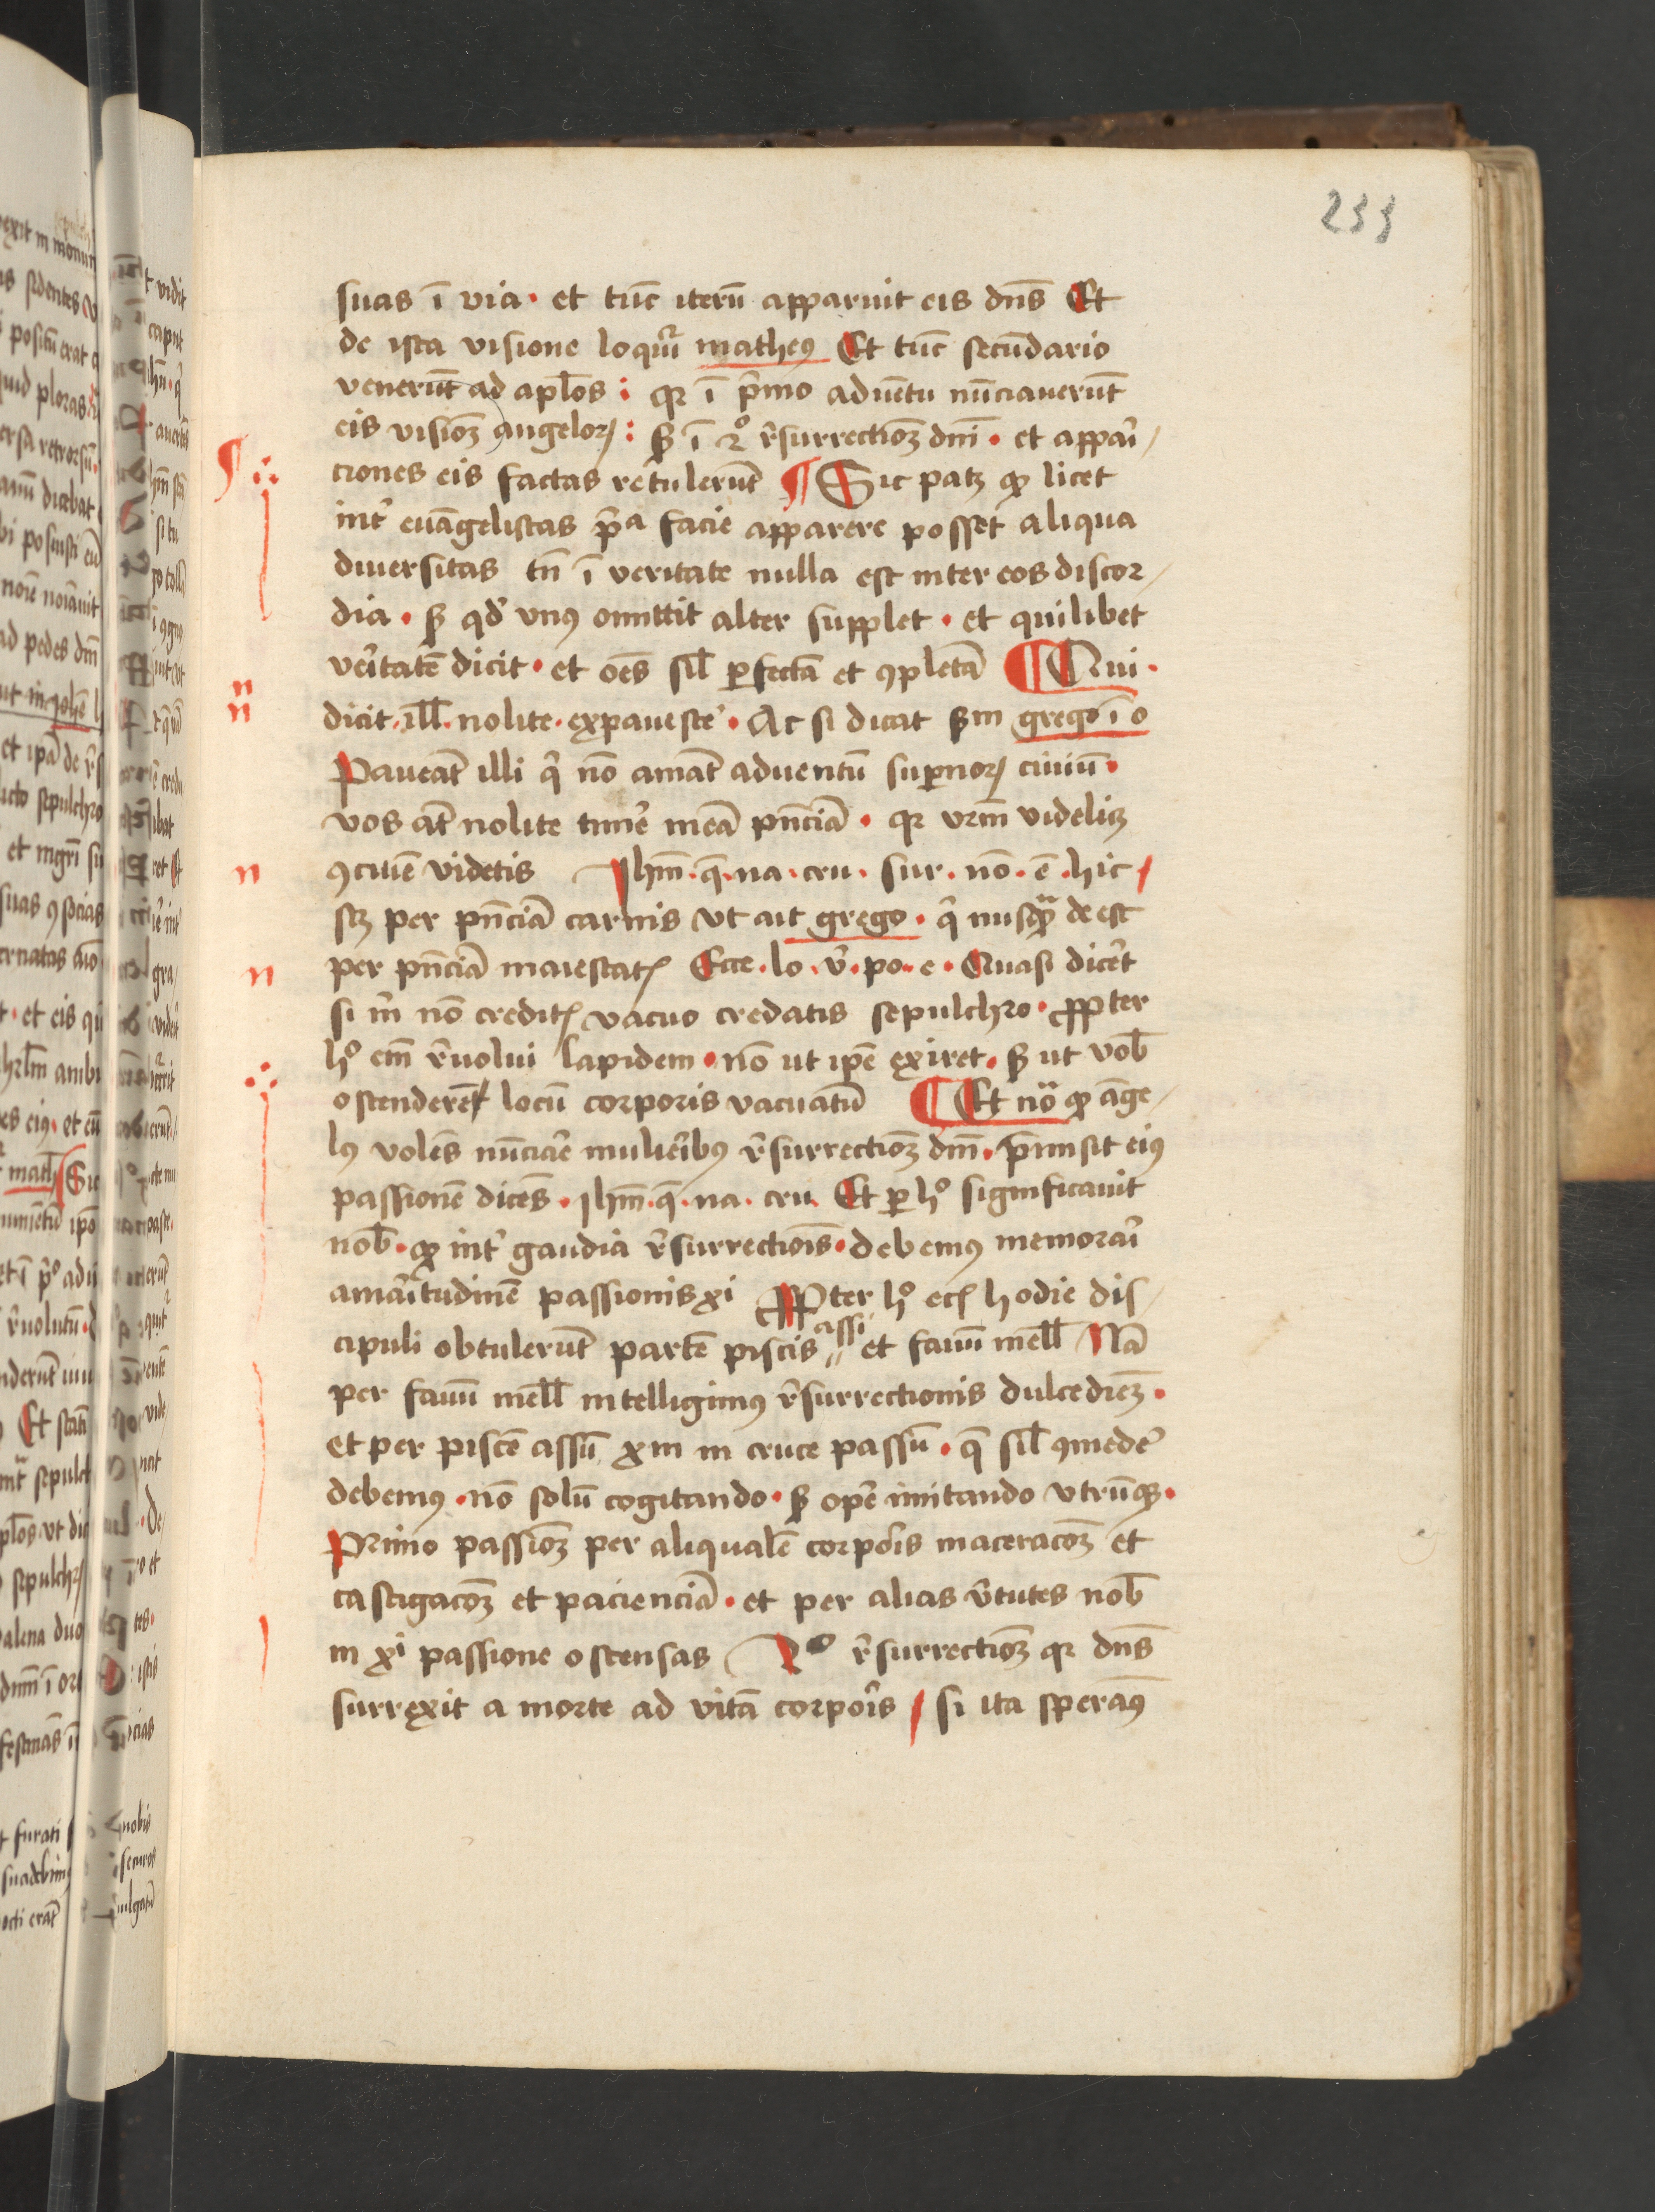 233
suas ī via · et tūc iterū apparuit eis dn̄s Et
de ista visione loquit᷑ matheꝰ Et tūc secūdario
venerūt ad apl̄os : qꝛ ī p̄mo aduētu nūciauerūt
eis visioꝫ angeloꝝ : sꝫ ī 2º r̄surrectioꝫ dn̄i · et appaȓi/
ciones eis factas retulerūt ¶ Sic patꝫ ꝙ licet
int̉ euāgelistas p̄ᵃ facie apparere posset aliqua
diuersitas tn̄ ī veritate nulla est inter eos discor/
dia · sꝫ qd̉ vnꝰ omittit alter supplet · et quilibet
veȓitatē dicit · et oēs sil̄ ꝑfectā et ꝯpletā ¶ Qui ·
dicit · ill̄ · nolite · expaueste̾ · Ac si dicat sꝫm grego ī o
Paueāt illi q̉ nō amāt aduentū suꝑnoꝝ ciuiū ·
vos āt nolite time̾ meā pn̄ciā · qꝛ vr̄m videliꝫ
ꝯciuē videtis Ihm̄ · q̄ · na · cru · sur · nō · ē · hic /
sꝫ per pn̄ciā carnis vt ait grego · q̉ nusqͣꝫ de est
per pn̄ciā maiestatꝭ Ecce · lo · v̉ · po · e · Quasi dice̾t
si m̉ nō creditꝭ vacuo credatis sepulchro · ꝓpter
hº em̄ r̄uolui lapidem · nō ut ip̄e exiret · sꝫ ut vob̄
ostenderet locū corporis vacuatū ¶ Et nōᵃ ꝙ āge/
lꝰ volēs nūcia̾e mulieȓibꝰ r̄surrectioꝫ dm̄ · p̄misit eiꝰ
passionē dicēs · Ihm̄ · q̄ · na · cru · Et ꝑ hº significauit
nob̄ · ꝙ int̉ gaudia r̄surrectiōis · debemꝰ memoraȓi
amaȓitudinē passionis xi Ꝓpter hº eciꝭ hodie dis/
cipuli obtulerūt partē piscis assi et fauū mell̄ Nā
per fauū mell̄ intelligimꝰ r̄surrectionis dulcedieꝫ ·
et per piscē assū xm in cruce passū · q̄ sil̄ ꝯmede̾
debemꝰ · nō solū cogitando · sꝫ ope̾ imitando vtrūqꝫ ·
Primo passioꝫ per aliqualē corpoȓis maceracoꝫ et
castigacoꝫ et pacienciā · et per alias v̉tutes nob̄
in xi̾ passione ostensas 2º r̄surrectioꝫ qꝛ dn̄s
surrexit a morte ad vitā corpoȓis / si ita speramꝰ